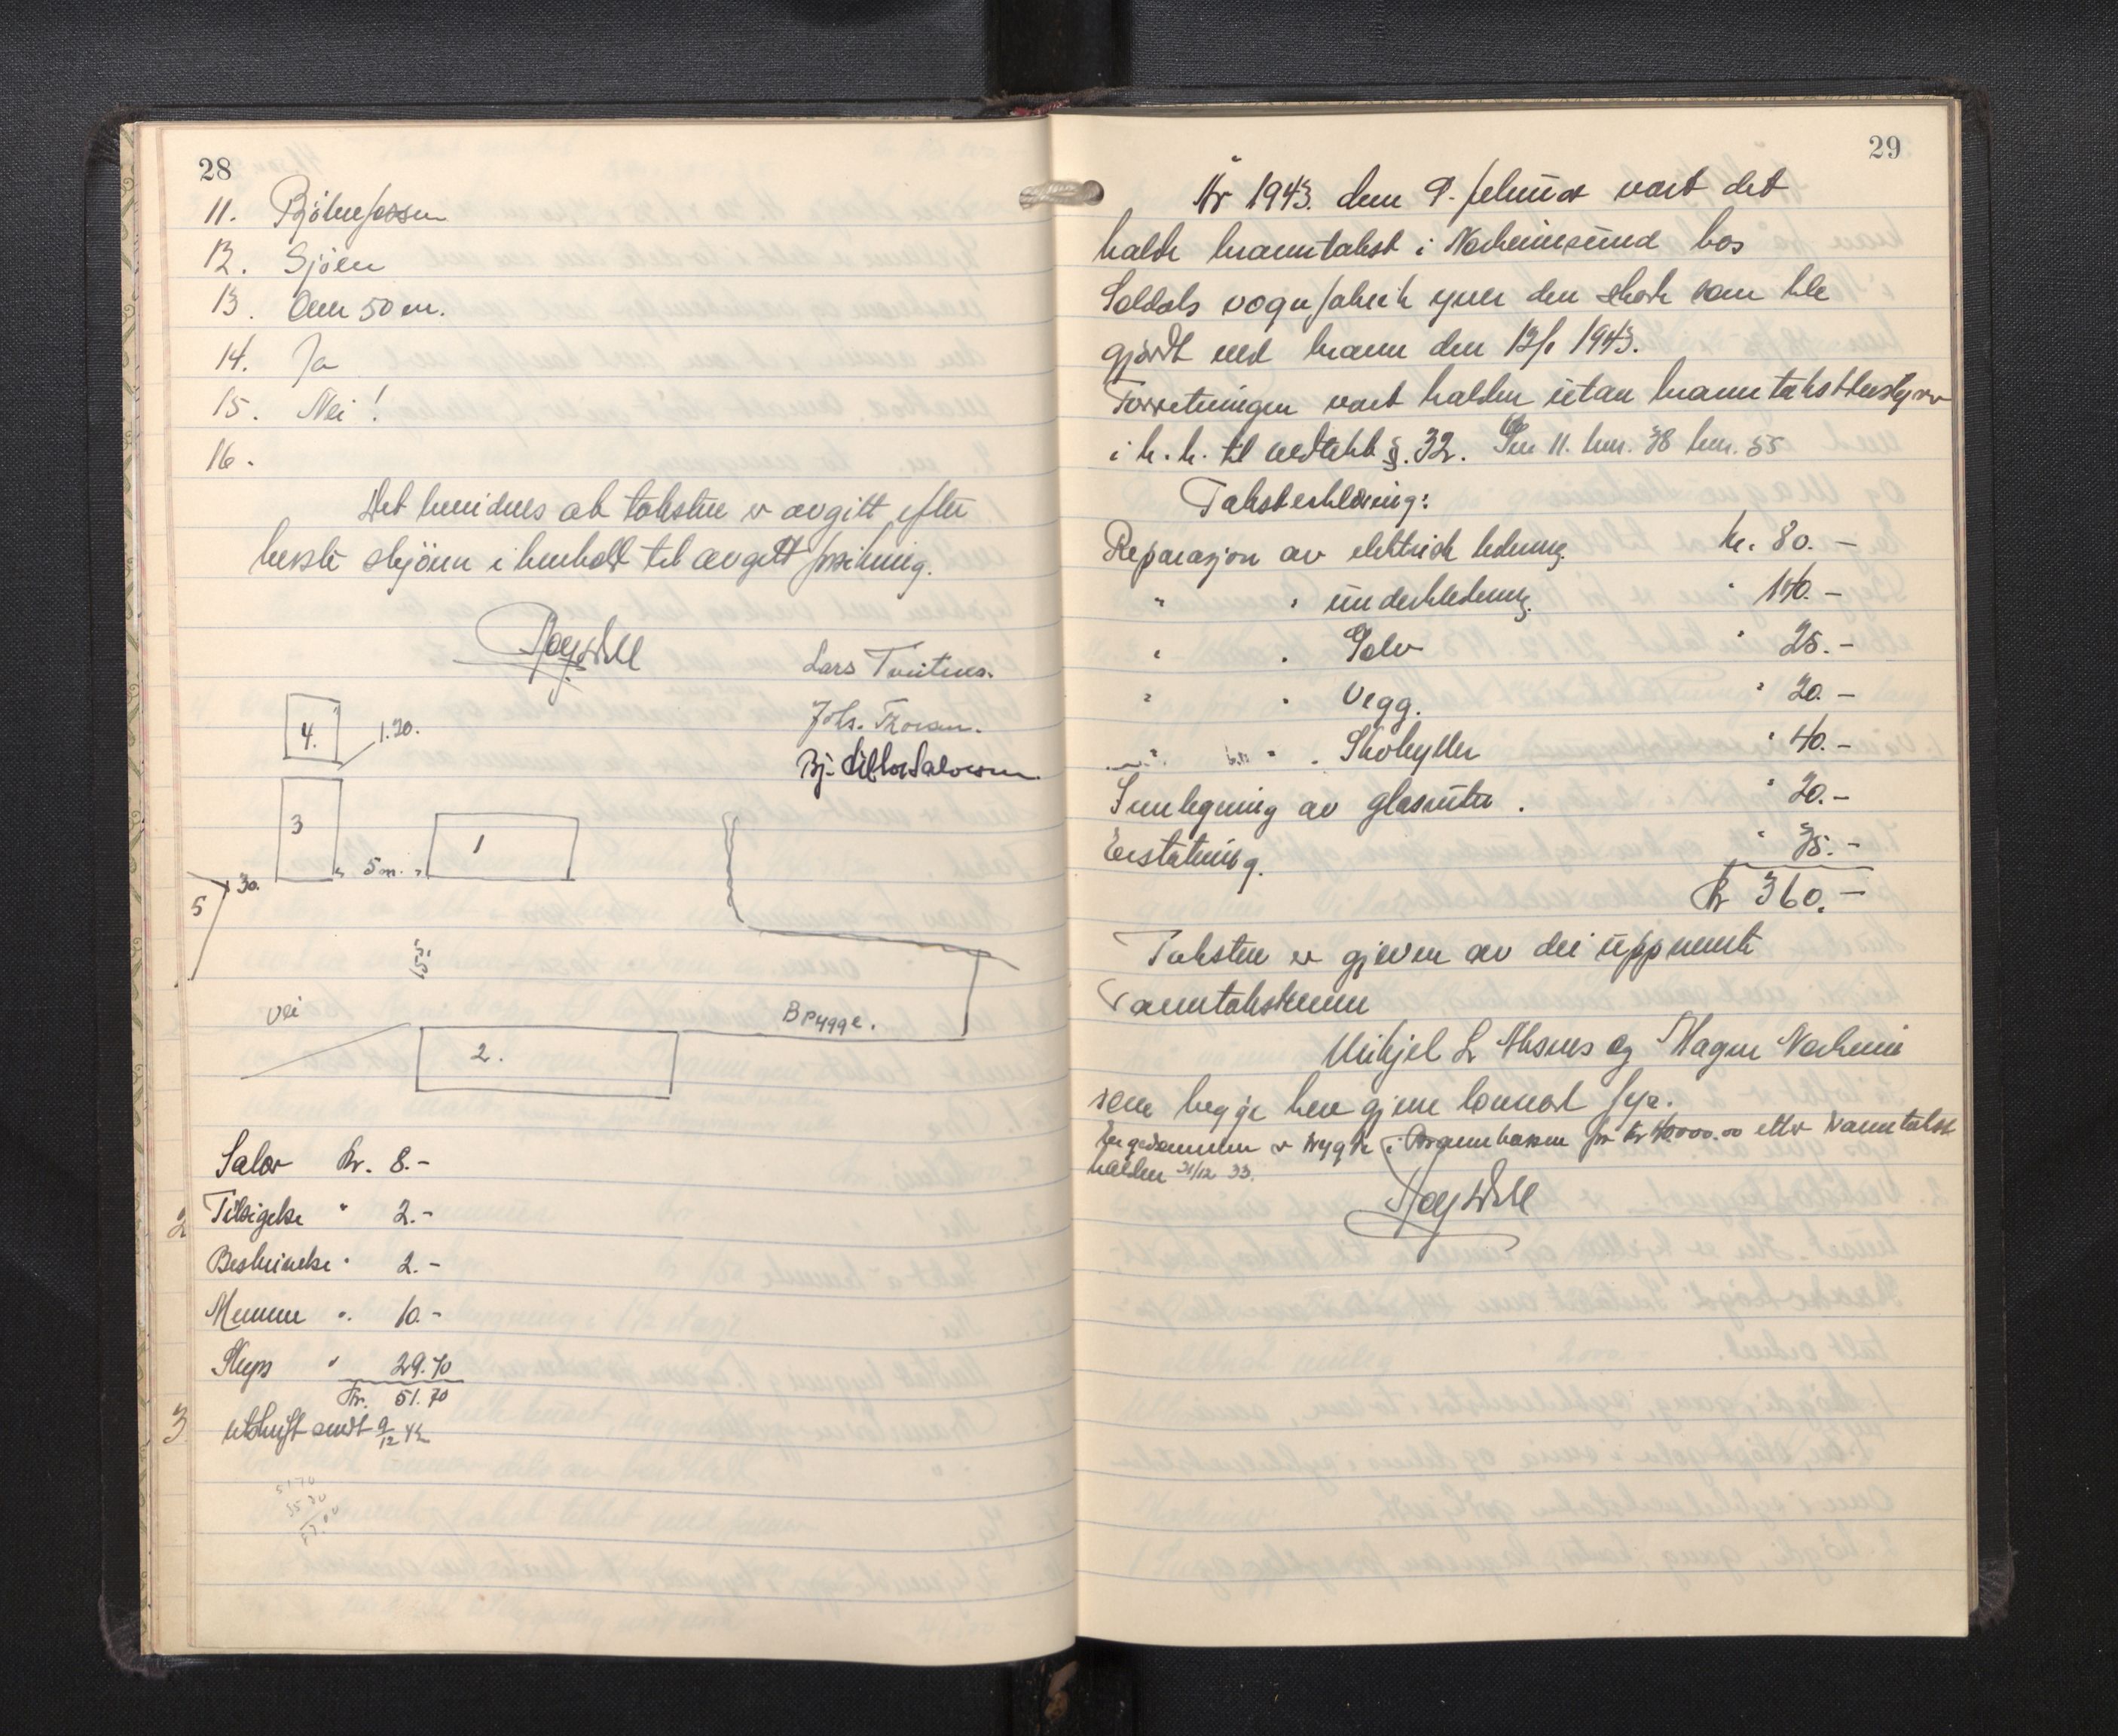 28
11. Bjölnefossen
12. Sjöen
13. Over 50 m.
14. Ja
15. Nei!
16.
Det bevidnes at taksten er avgitt efter
beste skjönn i henhold til avgitt forsikring.
Lars Tveitnes.
Johs. Thorsen.
Bj.
4.
1.20.
3
5 m.
1
5
30.
15.
Vei
Brygge.
2.
Salær Kr. 8.-
Tilsigelse " 2.-
2
Beskrivelse " 2.-
Mennene " 10.-
Skyss " 29.70
Kr. 51.70
3
Utskrift sendt 9/12 42
51.70
29
År 1943. den 9. februar vart det
halde branntakst i Norheimsund hos
Soldals vognfabrik yver den skade som ble
gjordt ved brann den 12/1 1943.
Forretningen vart halden utan branntakstbestyrer
i h.h. til vedtekt §. 32. Sin 11. bnr. 38 bnr. 55
Taksterklæring:
Reparasjon av elektrisk ledning. kr. 80.-
" " underkledning. " 140.-
" " Golv " 25.-
" " Vegg. " 20.-
" " Skohyller " 40.-
Innlegning av glasruter. " 20.-
Erstatning. " 35.-
Kr 360.-
Taksten er gjeven av dei uppnemnte
branntakstmenn
Mikjel L Aksnes og Magne Norheim
som begge hev gjeve lovnad fyr.
Eigedommen er trygda i Brannkassen for kr 40000.00 etter branntakst
halden 31/12 33.